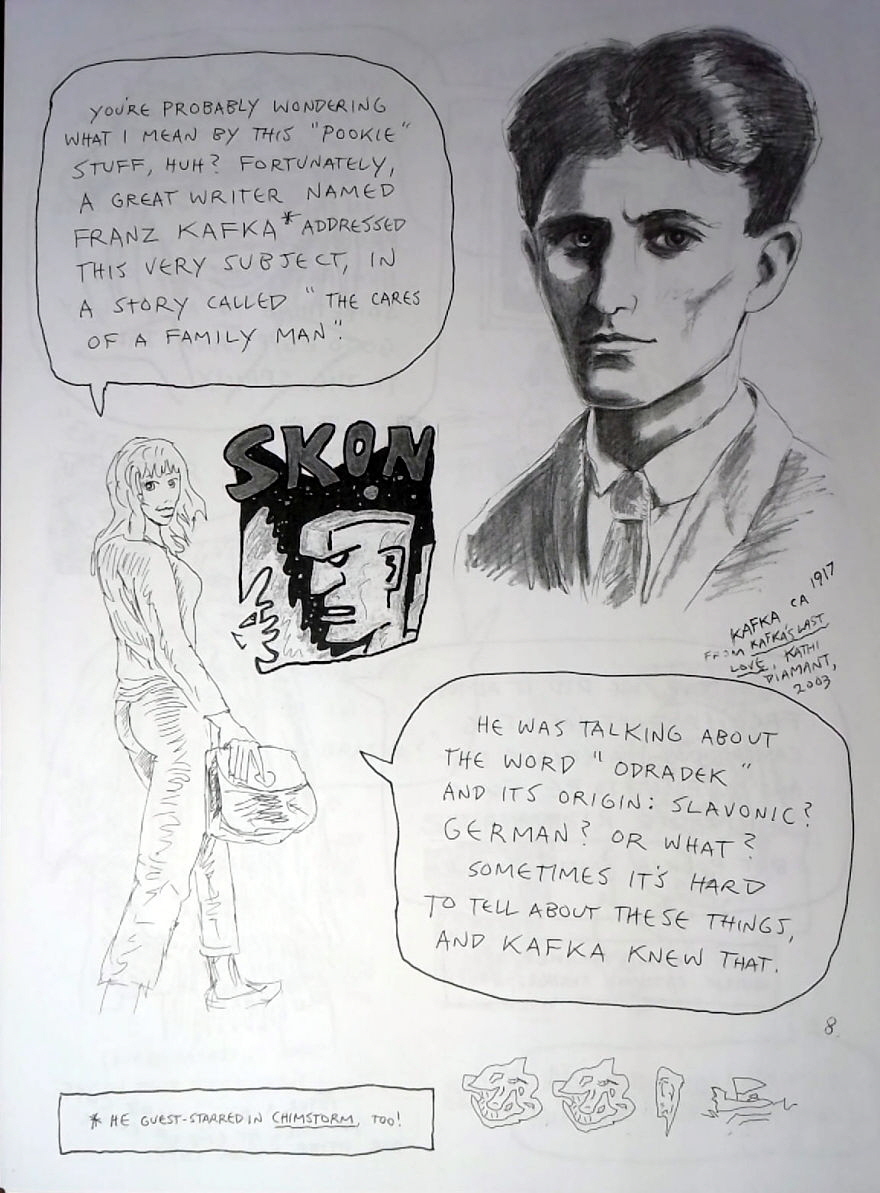 YOU'RE PROBABLY WONDERING
WHAT I MEAN BY THIS "POOKIE"
STUFF, HUH? FORTUNATELY,
A GREAT WRITER NAMED
FRANZ KAFKA* ADDRESSED
THIS VERY SUBJECT, IN
A STORY CALLED "THE CARES
OF A FAMILY MAN".
SKON
KAFKA CA 1917
FROM KAFKA'S LAST
LOVE, KATHI
DIAMANT,
2003
HE WAS TALKING ABOUT
THE WORD "ODRADEK"
AND ITS ORIGIN: SLAVONIC?
GERMAN? OR WHAT?
SOMETIMES IT'S HARD
TO TELL ABOUT THESE THINGS,
AND KAFKA KNEW THAT.
8.
* HE GUEST-STARRED IN CHIMSTORM, TOO!